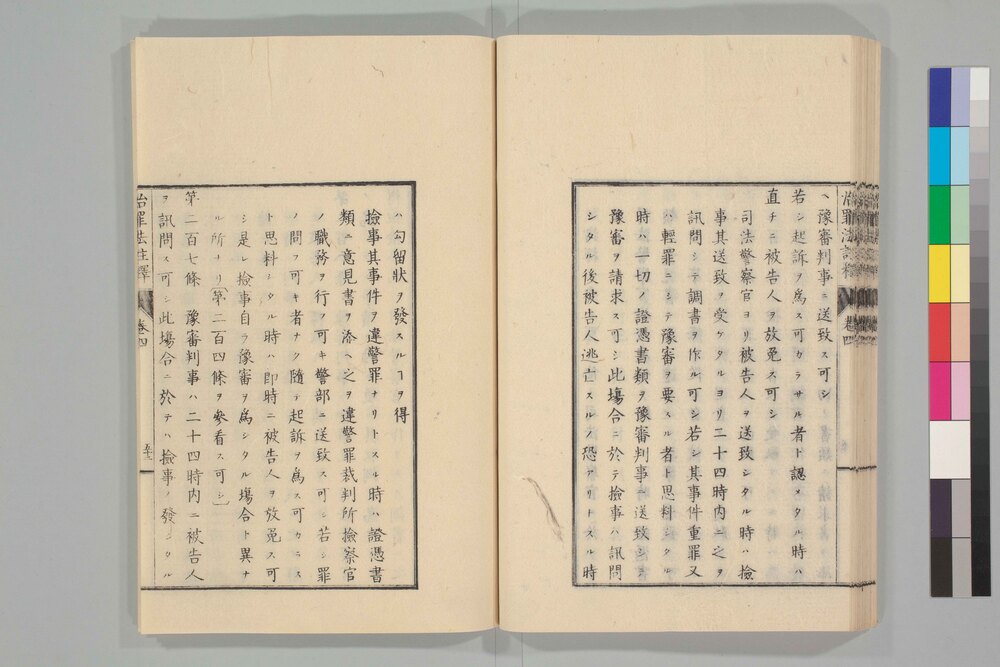 ヽ豫審判事ニ送致ス可シ
若シ起訴ヲ為ス可カラサル者ト認メタル時ハ
直チニ被告人ヲ放免ス可シ
司法警察官ヨリ被告人ヲ送致シタル時ハ撿
事其送致ヲ受ケタルヨリ二十四時内ニ之ヲ
訊問シテ調書ヲ作ル可シ若シ其事件重罪又
ハ輕罪ニシテ豫審ヲ要スル者ト思料シタル
時ハ一切ノ證憑書類ヲ豫審判事ニ送致シテ
豫審ヲ請求ス可シ此塲合ニ於テ撿事ハ訊問
シタル後被告人逃亡スルノ恐アリトスル時
ハ勾留狀ヲ發スルヿヲ得
撿事其事件ヲ違警罪ナリトスル時ハ證憑書
類ニ意見書ヲ添ヘ之ヲ違警罪裁判所撿察官
ノ職務ヲ行フ可キ警部ニ送致ス可シ若シ罪
ノ問フ可キ者ナク隨テ起訴ヲ為ス可カラス
ト思料シタル時ハ即時ニ被告人ヲ放免ス可
シ是レ撿事自ラ豫審ヲ為シタル塲合ト異ナ
ル所ナリ〔第二百四條ヲ參看ス可シ〕
第二百七條 豫審判事ハ二十四時内ニ被告人
ヲ訊問ス可シ此塲合ニ於テハ撿事ノ發シタル
治罪法註釋 卷四